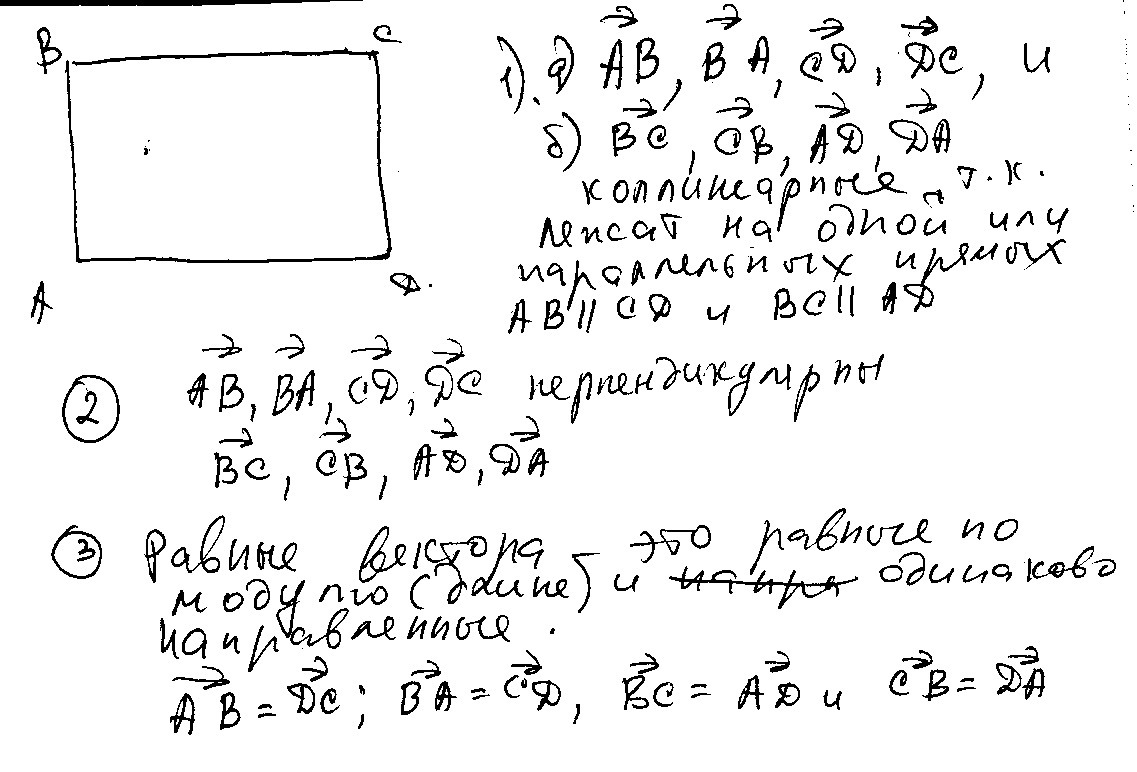 B
C
A
D.
1). а) AB, BA, CD, DC, и
б) BC, CB, AD, DA
коллинеарные, т.к.
лежат на одной или
параллельных прямых
AB || CD и BC || AD
2 AB, BA, CD, DC перпендикулярны
BC, CB, AD, DA
3 Равные вектора – это равные по
модулю (длине) и напра одинаково
направленные.
AB = DC; BA = CD, BC = AD и CB = DA